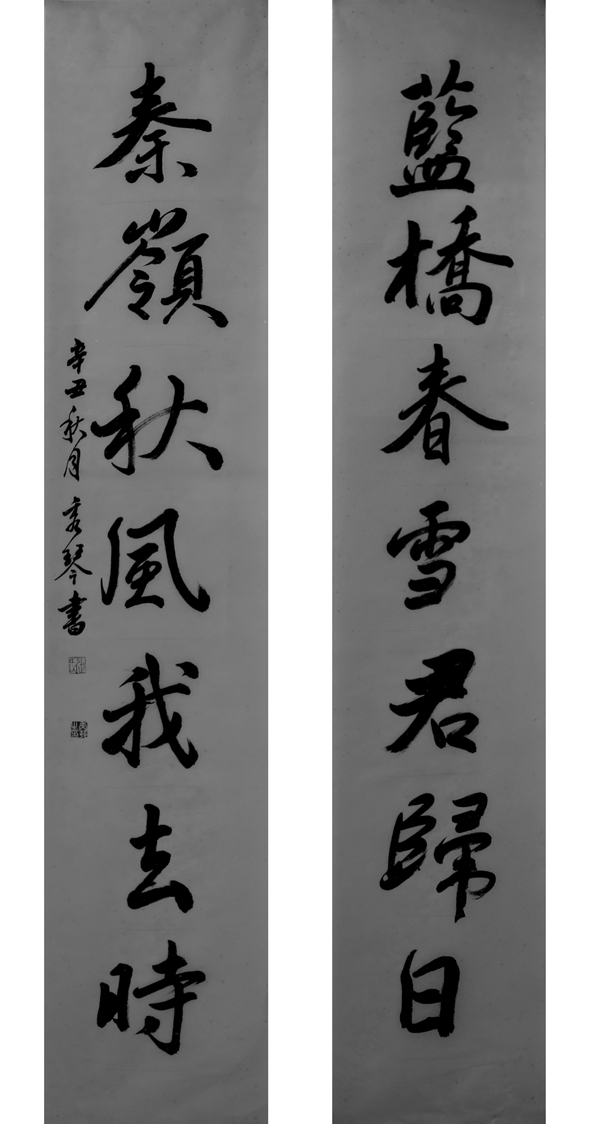 藍橋春雪君歸日
秦嶺秋風我去時
辛丑秋月秀琴書